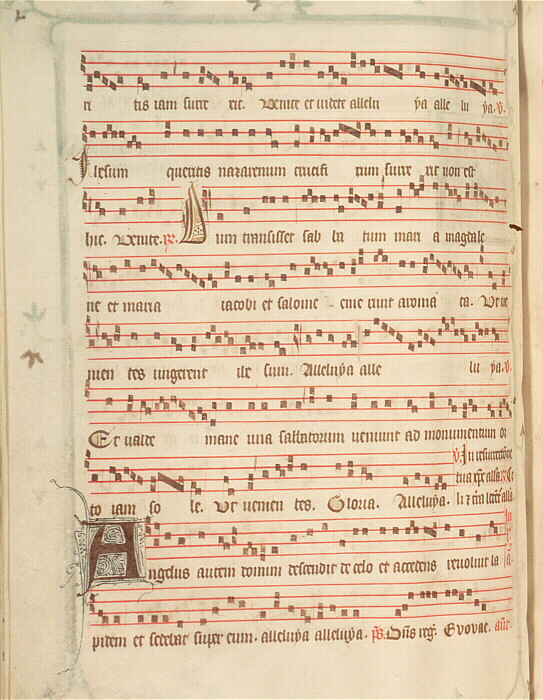 ri tis iam surre xit. Venite et videte allelu ya alle lu ya. V.
Ihesum queritis nazarenum crucifi xum surre xit non est
hic. Venite. R. Dum transisset sab ba tum mari a magdale
ne et maria iacobi et salome eme runt aroma ta. Ut ve
nien tes ungerent ihe sum. Alleluya alle lu ya. V.
Et valde mane una sabbatorum veniunt ad monumentum or
V. In resurrectione
tua xpe alla
to iam so le. Ut venien tes. Gloria. Alleluya.
Angelus autem domini descendit de celo et accedens revolvit la
pidem et sedebat super eum. alleluya alleluya. ps. Dns reg. Evovae. an.